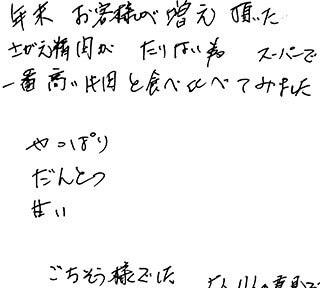 年末 お客様が 増え 頂いた
さがえ精肉が たりない為 スーパーで
一番高い牛肉と食べ比べてみました
やっぱり
だんとつ
甘い
ごちそう様でした